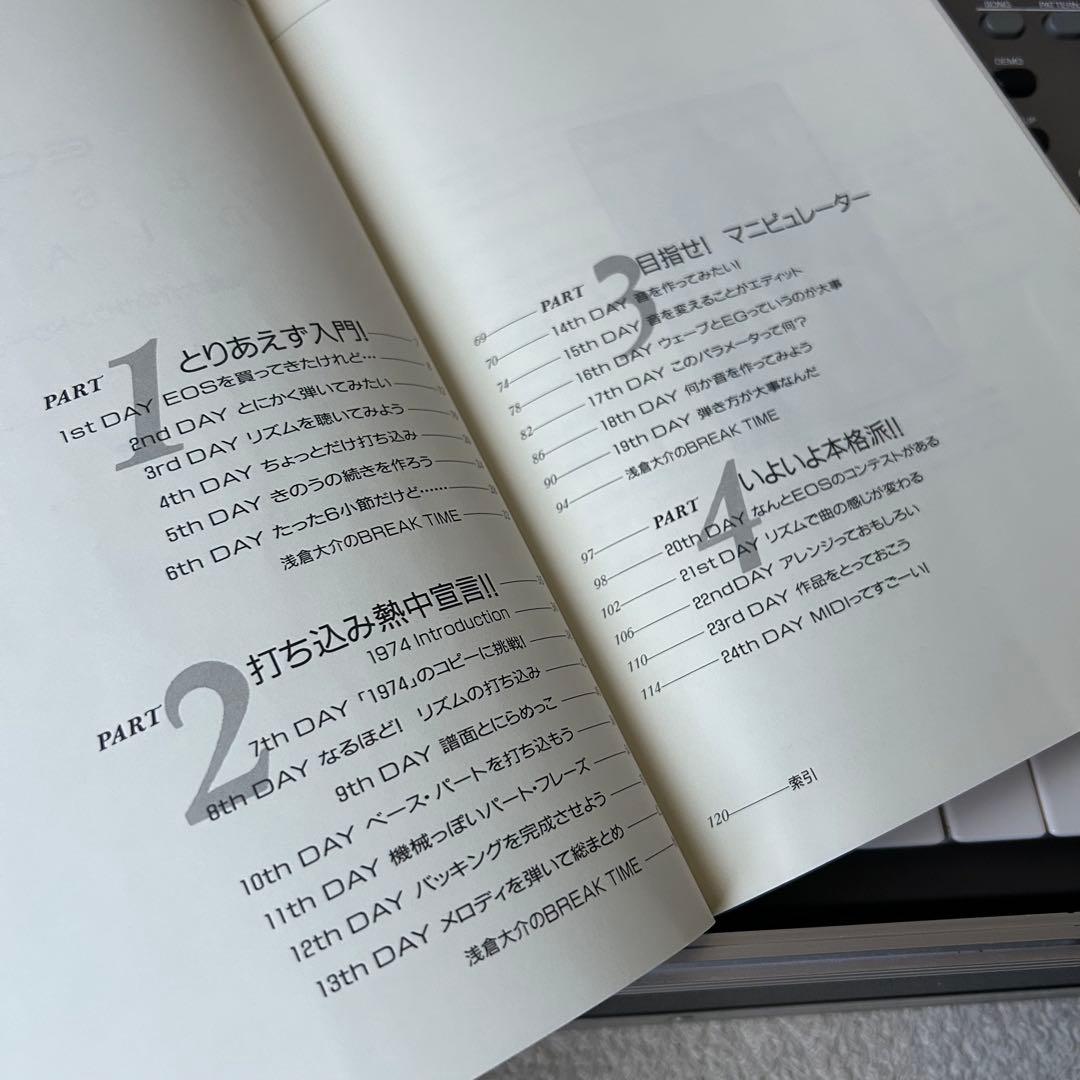 PART 1 とりあえず入門!
1st DAY EOSを買ってきたけれど…
2nd DAY とにかく弾いてみたい
3rd DAY リズムを聴いてみよう
4th DAY ちょっとだけ打ち込み
5th DAY きのうの続きを作ろう
6th DAY たった6小節だけど……
浅倉大介のBREAK TIME
PART 2 打ち込み熱中宣言!!
1974 Introduction
7th DAY 「1974」のコピーに挑戦!
8th DAY なるほど! リズムの打ち込み
9th DAY 譜面とにらめっこ
10th DAY ベース・パートを打ち込もう
11th DAY 機械っぽいパート・フレーズ
12th DAY バッキングを完成させよう
13th DAY メロディを弾いて総まとめ
浅倉大介のBREAK TIME
69 PART 3 目指せ! マニピュレーター
70 14th DAY 音を作ってみたい!
74 15th DAY 音を変えることがエディット
78 16th DAY ウェーブとEGっていうのが大事
82 17th DAY このパラメータって何?
86 18th DAY 何か音を作ってみよう
90 19th DAY 弾き方が大事なんだ
94 浅倉大介のBREAK TIME
97 PART 4 いよいよ本格派!!
98 20th DAY なんとEOSのコンテストがある
102 21st DAY リズムで曲の感じが変わる
106 22nd DAY アレンジっておもしろい
110 23rd DAY 作品をとっておこう
114 24th DAY MIDIってすごーい!
120 索引
SONG
PATTERN
DEMO